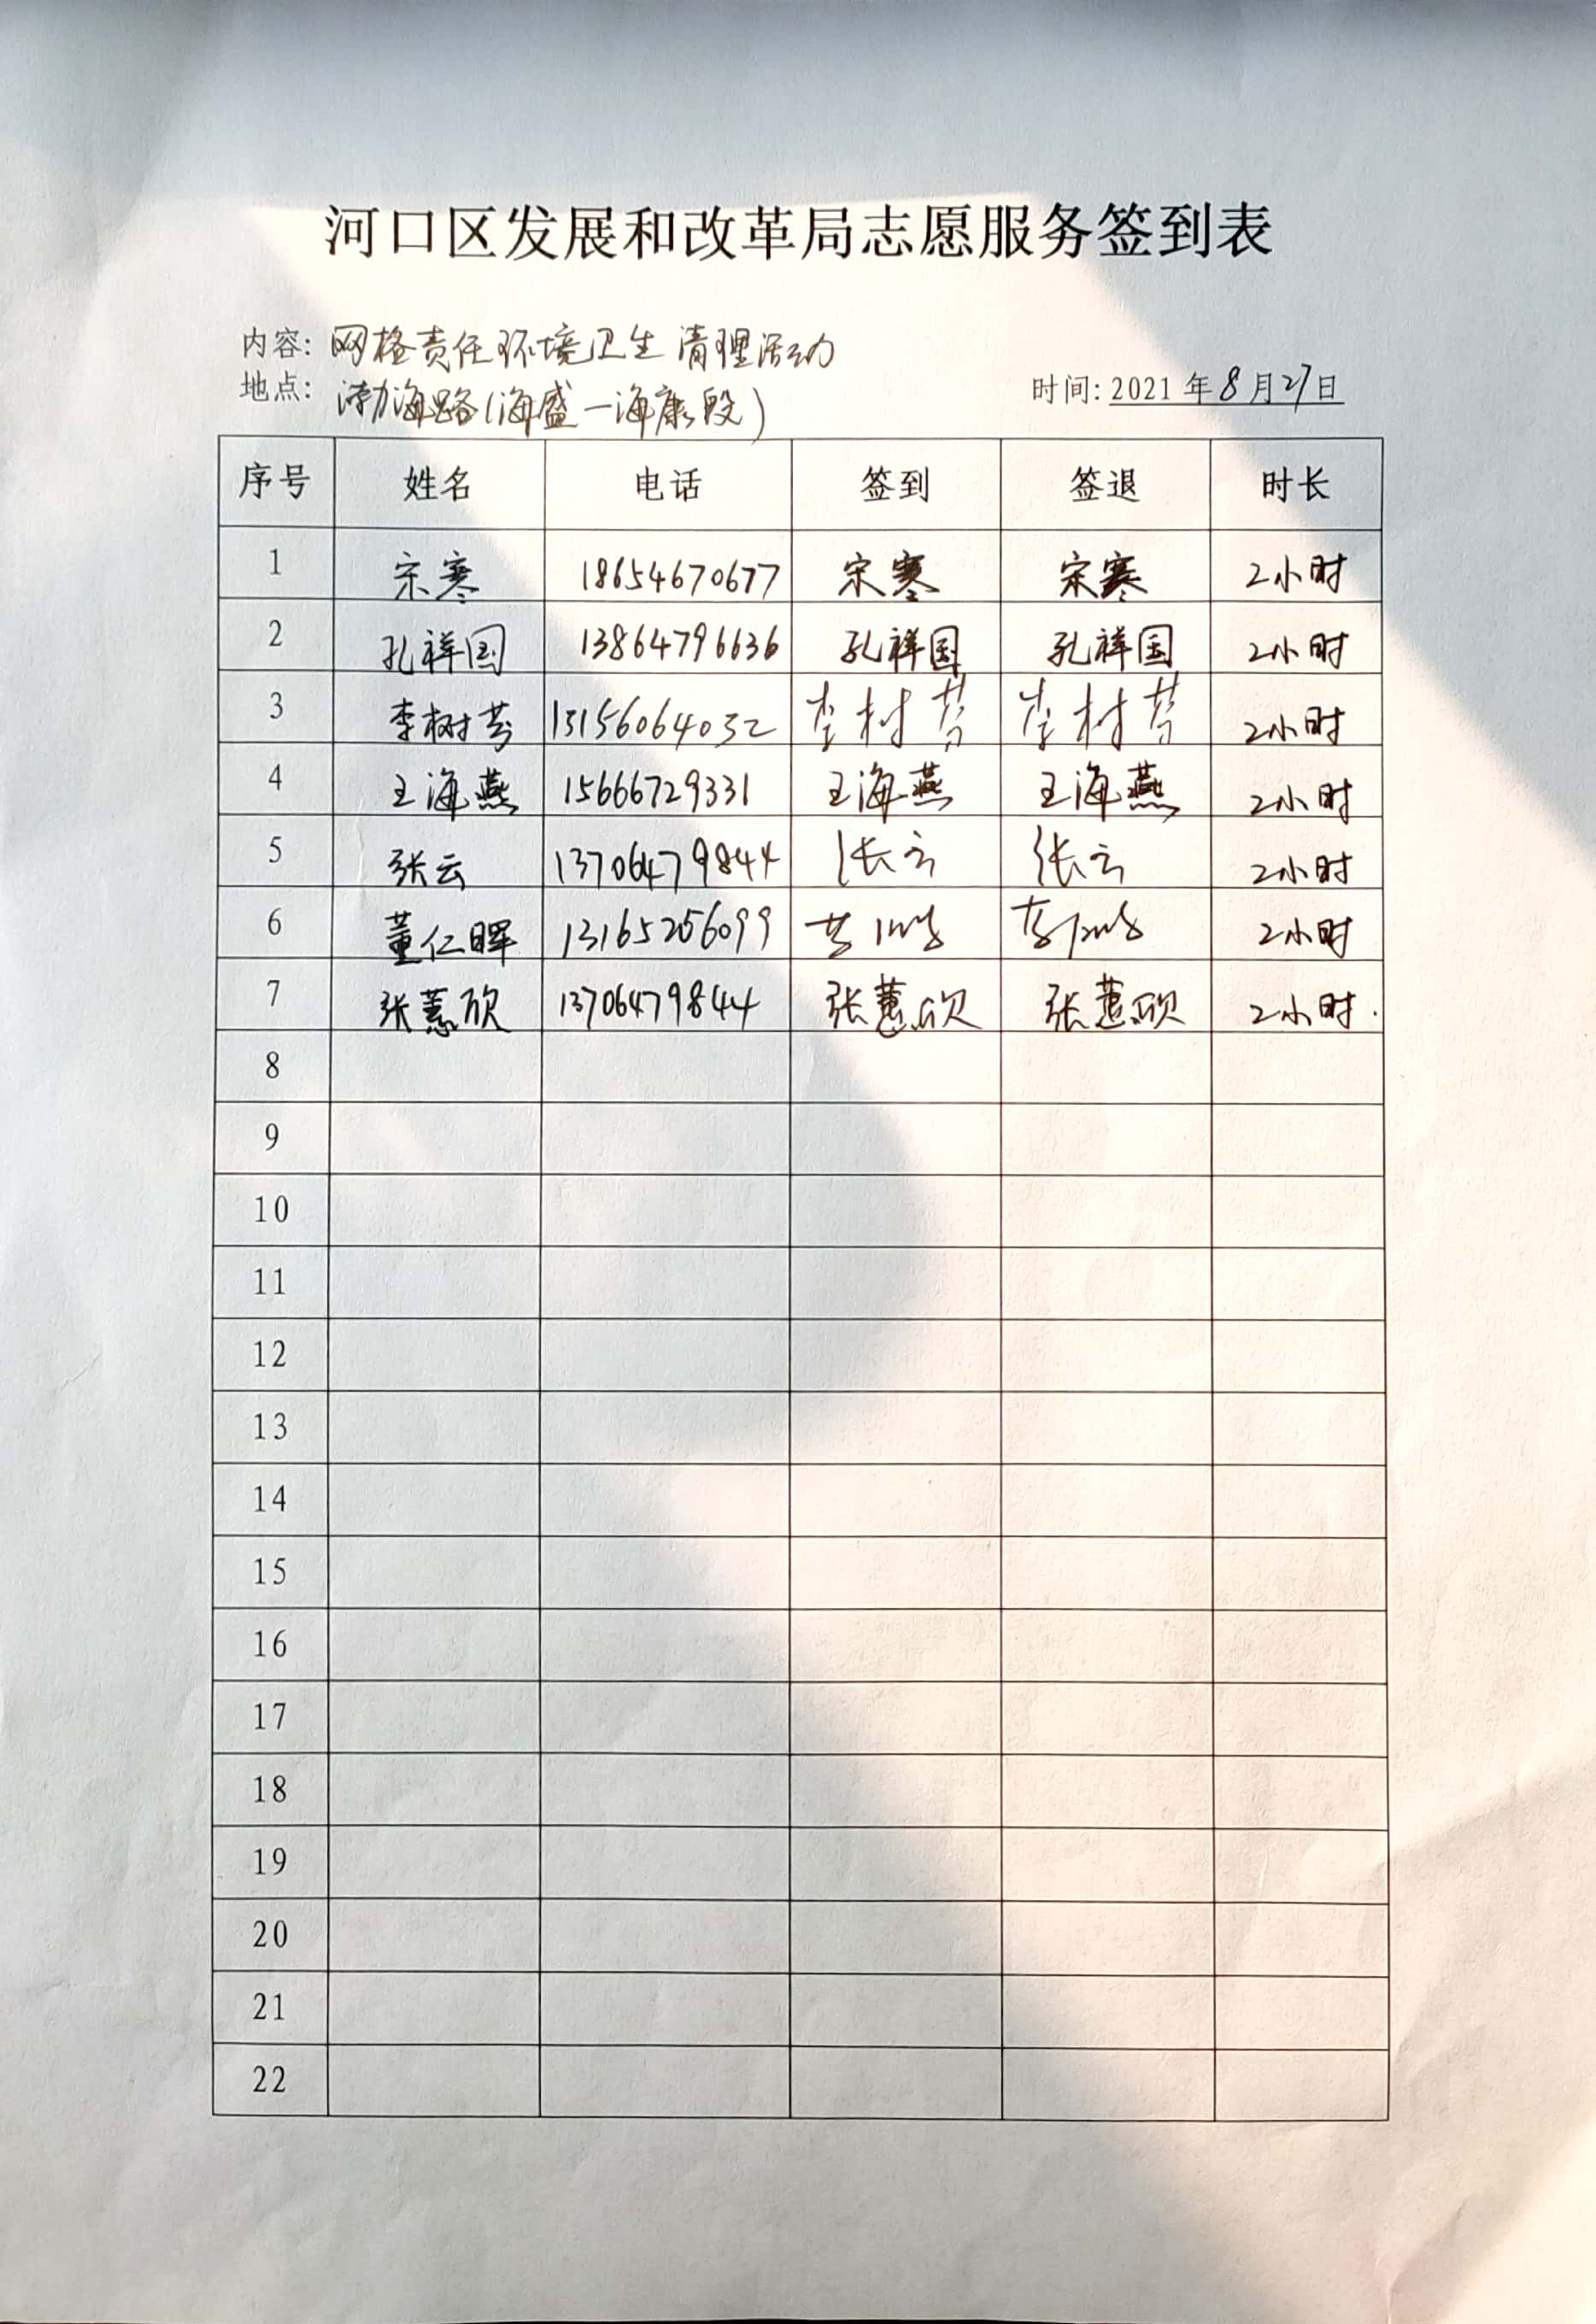 河口区发展和改革局志愿服务签到表
内容: 网格责任环境卫生清理活动
地点: 渤海路(海盛一海康段) 时间: 2021年8月27日
序号 姓名 电话 签到 签退 时长
1 宋寒 18654670677 宋寒 宋寒 2小时
2 孔祥国 13864796636 孔祥国 孔祥国 2小时
3 李树芬 13156064032 李树芬 李树芬 2小时
4 王海燕 15666729331 王海燕 王海燕 2小时
5 张云 13706479844 张云 张云 2小时
6 董仁晖 13165256099 2小时
7 张蕙欣 13706479844 张蕙欣 张蕙欣 2小时.
8
9
10
11
12
13
14
15
16
17
18
19
20
21
22